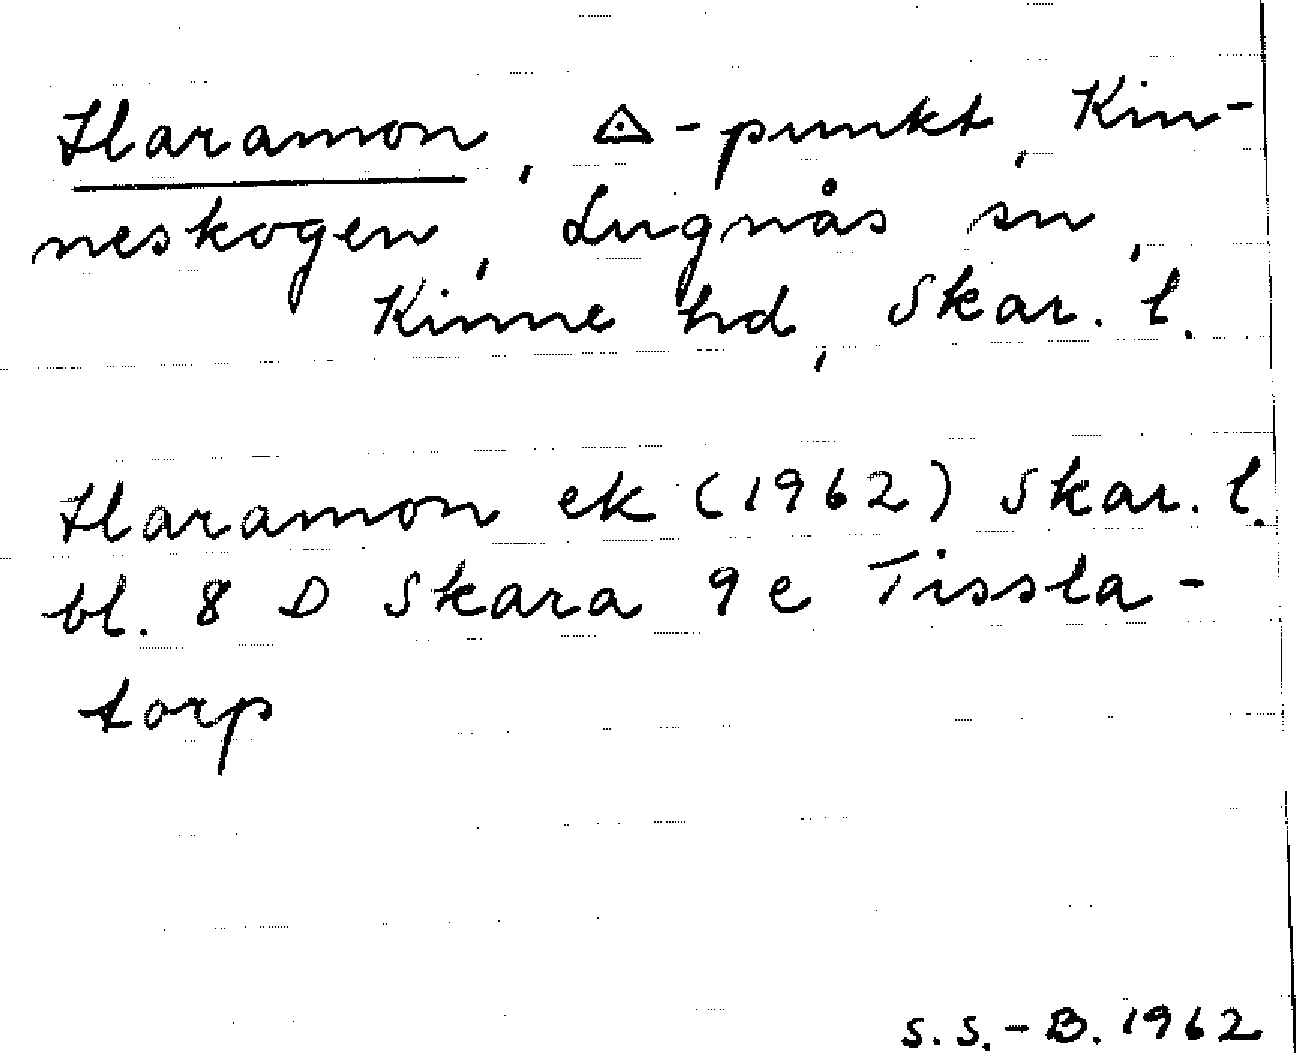 Haramon, ◬-punkt, Kin-
neskogen, Lugnås sn,
Kinne hd, Skar. l.
Haramon ek (1962) Skar. l.
bl. 8 D Skara 9e Tissla-
torp
S.S.-B. 1962